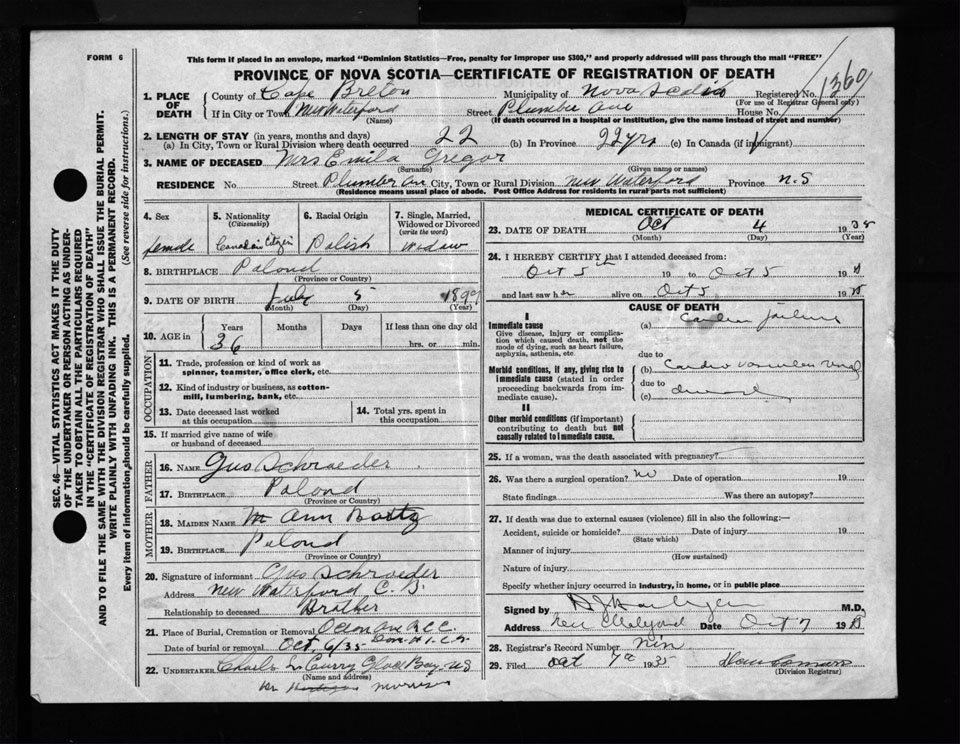 FORM 6
This form if placed in an envelope, marked "Dominion Statistics—Free, penalty for improper use $300," and properly addressed will pass through the mail "FREE"
PROVINCE OF NOVA SCOTIA—CERTIFICATE OF REGISTRATION OF DEATH
1360
1. PLACE OF DEATH County of Cape Breton Municipality of Nova Scotia Registered No.
(For use of Registrar General only)
If in City or Town New Waterford Street Plumber Ave House No.
(Name) (If death occurred in a hospital or institution, give the name instead of street and number)
2. LENGTH OF STAY (in years, months and days)
(a) In City, Town or Rural Division where death occurred 22 (b) In Province 22 yrs (c) In Canada (if immigrant)
3. NAME OF DECEASED Mrs Emila Gregor
(Surname) (Given name or names)
RESIDENCE No. Street Plumber Av City, Town or Rural Division New Waterford Province N.S
(Residence means usual place of abode. Post Office Address for residents in rural parts not sufficient)
4. Sex 5. Nationality 6. Racial Origin 7. Single, Married,
(Citizenship) Widowed or Divorced
(Write the word)
female Canadian Citizen Polish Widow
8. BIRTHPLACE Polond
(Province or Country)
9. DATE OF BIRTH July 5 1899
(Month) (Day) (Year)
10. AGE in Years Months Days If less than one day old
36 hrs. or min.
OCCUPATION
11. Trade, profession or kind of work as
spinner, teamster, office clerk, etc.
12. Kind of industry or business, as cotton-
mill, lumbering, bank, etc.
13. Date deceased last worked 14. Total yrs. spent in
at this occupation this occupation
15. If married give name of wife
or husband of deceased
FATHER
16. NAME Gus Schroeder
17. BIRTHPLACE Polond
(Province or Country)
MOTHER
18. MAIDEN NAME Ann
19. BIRTHPLACE Polond
(Province or Country)
20. Signature of informant Gus Schroeder
Address New Waterford C. B.
Relationship to deceased Brother
21. Place of Burial, Cremation or Removal Ocean Ave R.C.C.
Date of burial or removal Oct. 6/35
22. UNDERTAKER Charles L Curry Glace Bay, N.S
(Name and address)
Morrison
MEDICAL CERTIFICATE OF DEATH
23. DATE OF DEATH Oct 4 1935
(Month) (Day) (Year)
24. I HEREBY CERTIFY that I attended deceased from:
Oct 5th 19 to Oct 5 19
and last saw her alive on Oct 5 19
CAUSE OF DEATH
I
Immediate cause (a) Cardiac failure
Give disease, injury or complica-
tion which caused death, not the
mode of dying, such as heart failure,
asphyxia, asthenia, etc due to
Morbid conditions, if any, giving rise to (b) Cardio vascular renal
immediate cause (stated in order due to
proceeding backwards from im- (c) disease
mediate cause).
II
Other morbid conditions (if important)
contributing to death but not
causally related to immediate cause.
25. If a woman, was the death associated with pregnancy?
26. Was there a surgical operation? no Date of operation 19
State findings Was there an autopsy?
27. If death was due to external causes (violence) fill in also the following:—
Accident, suicide or homicide? Date of injury 19
(State which)
Manner of injury
(How sustained)
Nature of injury
Specify whether injury occurred in industry, in home, or in public place
Signed by M.D.
Address New Date Oct 7 19
28. Registrar's Record Number
29. Filed Oct 7th 1935
(Division Registrar)
SEC. 46—VITAL STATISTICS ACT MAKES IT THE DUTY
OF THE UNDERTAKER OR PERSON ACTING AS UNDER-
TAKER TO OBTAIN ALL THE PARTICULARS REQUIRED
IN THE "CERTIFICATE OF REGISTRATION OF DEATH"
AND TO FILE THE SAME WITH THE DIVISION REGISTRAR WHO SHALL ISSUE THE BURIAL PERMIT.
WRITE PLAINLY WITH UNFADING INK. THIS IS A PERMANENT RECORD.
Every item of information should be carefully supplied. (See reverse side for instructions.)